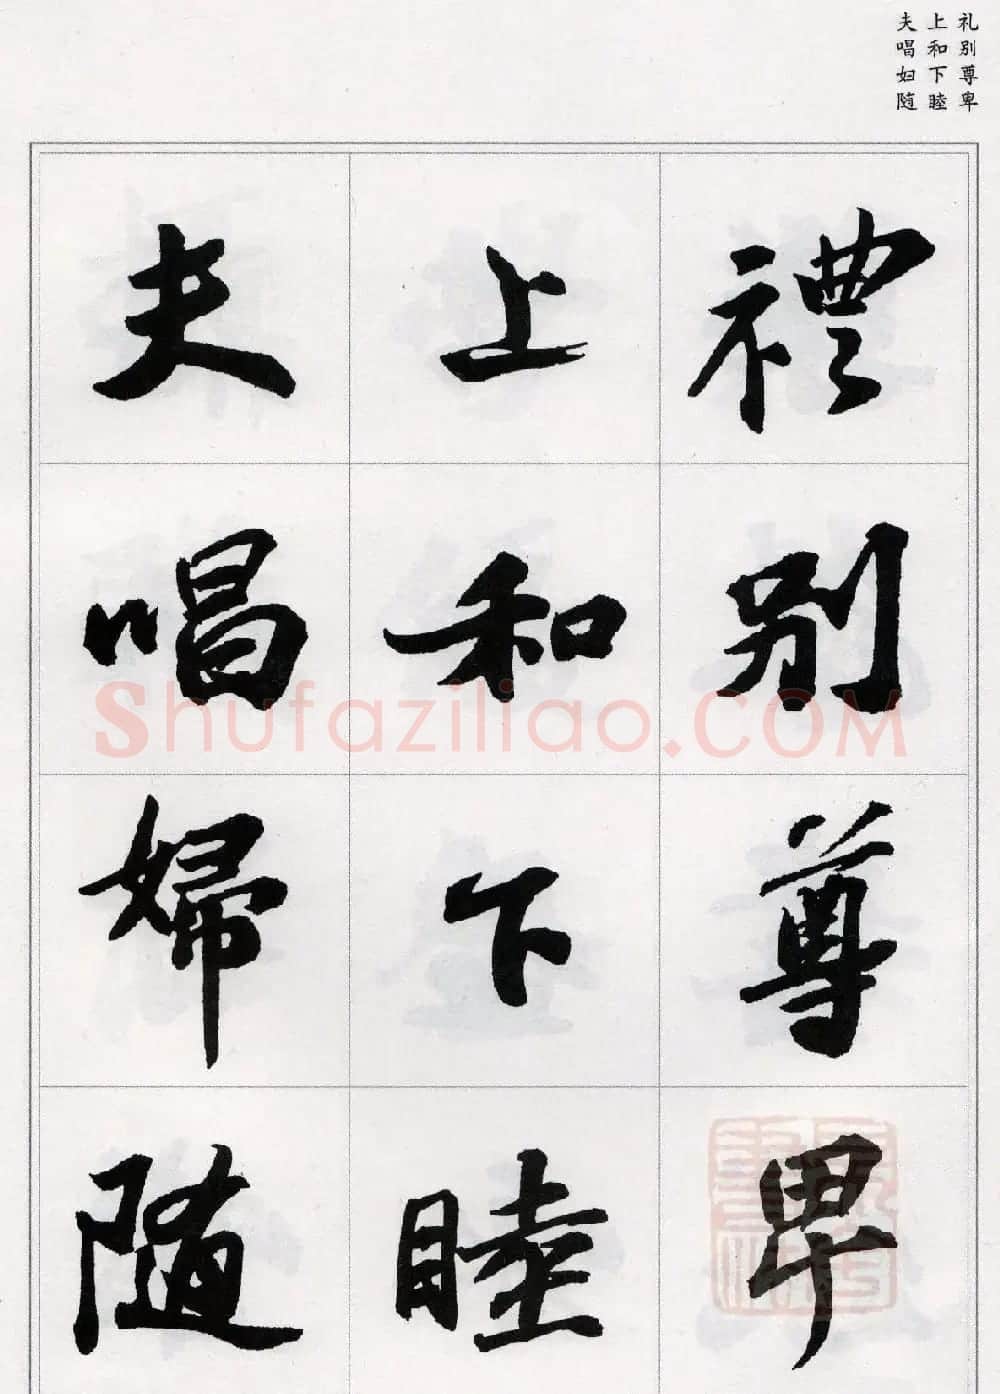 礼别尊卑
上和下睦
夫唱妇随
禮别尊卑
上和下睦
夫唱婦随
Shufaziliao.COM